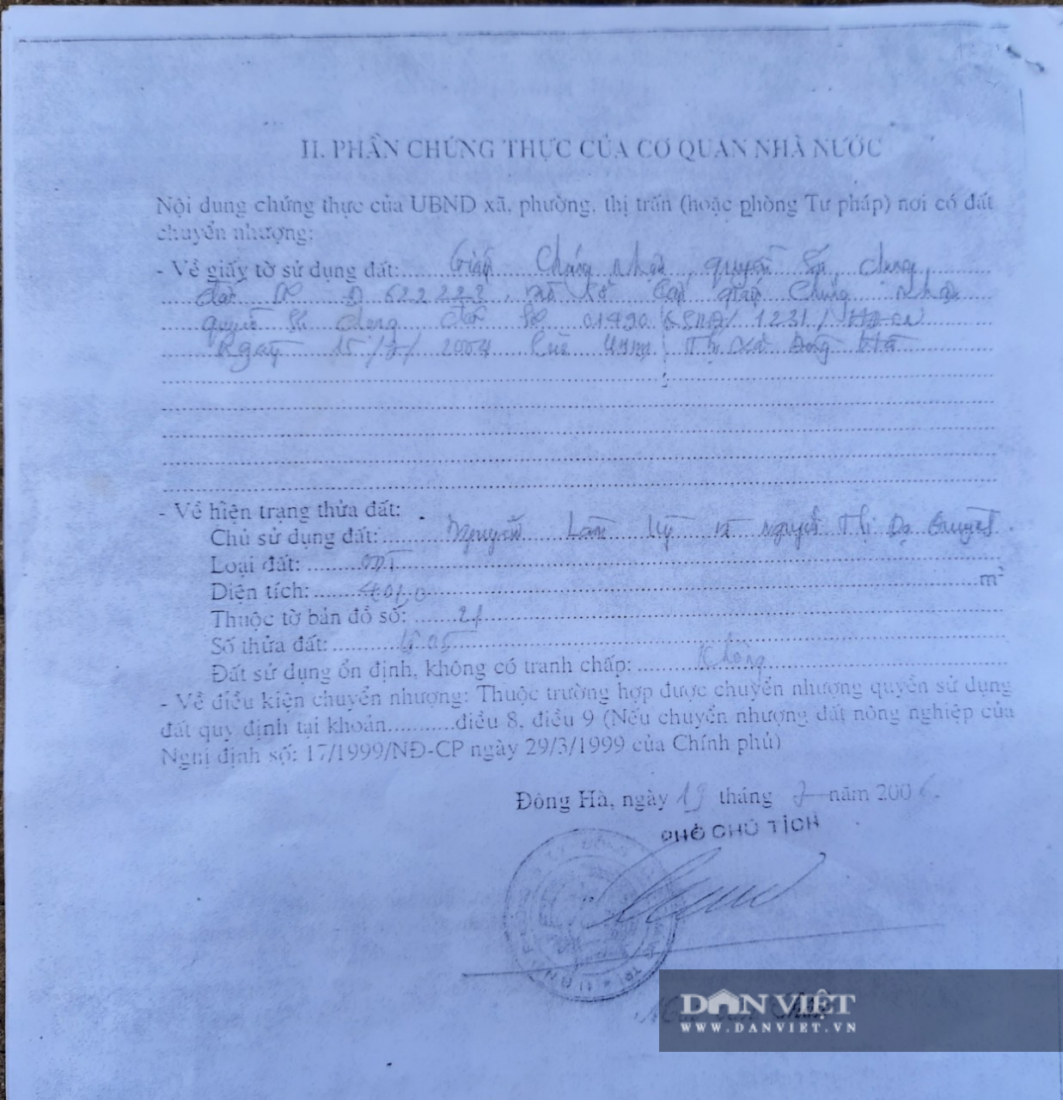 II. PHẦN CHỨNG THỰC CỦA CƠ QUAN NHÀ NƯỚC
Nội dung chứng thực của UBND xã, phường, thị trấn (hoặc phòng Tư pháp) nơi có đất
chuyển nhượng:
- Về giấy tờ sử dụng đất: Giấy Chứng nhận quyền sử dụng
đất số Đ 622223, Cấp giấy Chứng nhận
quyền sử dụng đất số 01490 QSDĐ/1231/
Ngày 15/7/2004 của UBND Thị xã Đông Hà
- Về hiện trạng thửa đất:
Chủ sử dụng đất: Nguyễn Lâm Kỳ và Nguyễn Thị Dạ
Loại đất: ODT
Diện tích: m²
Thuộc tờ bản đồ số: 21
Số thửa đất:
Đất sử dụng ổn định, không có tranh chấp: Không
- Về điều kiện chuyển nhượng: Thuộc trường hợp được chuyển nhượng quyền sử dụng
đất quy định tại khoản...........điều 8, điều 9 (Nếu chuyển nhượng đất nông nghiệp của
Nghị định số: 17/1999/NĐ-CP ngày 29/3/1999 của Chính phủ)
Đông Hà, ngày 19 tháng 7 năm 2006.
PHÓ CHỦ TỊCH
DÂN VIỆT
WWW.DANVIET.VN